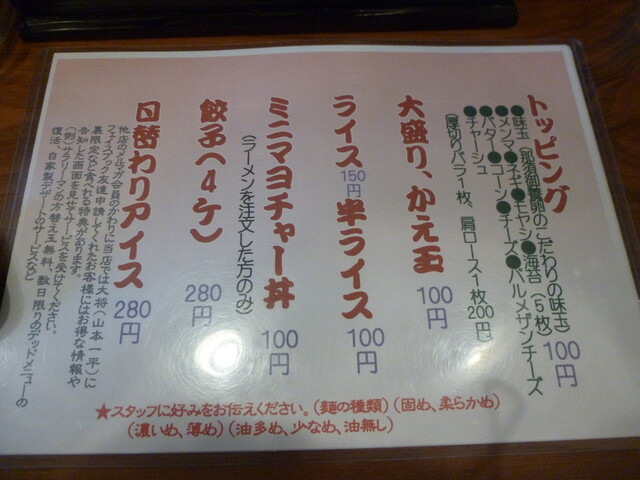 トッピング 100円
●味玉(那須御養卵のこだわりの味玉)
●メンマ●ネギ●モヤシ●海苔(5枚)
●バター●コーン●チーズ●パルメザンチーズ
●チャーシュー
(厚切りバラ1枚、肩ロース1枚200円)
大盛り、かえ玉 100円
ライス150円 半ライス 100円
ミニマヨチャー丼 100円
(ラーメンを注文した方のみ)
餃子(4ケ) 280円
日替わりアイス 280円
他店のメルマガ会員のかわりに当店では大将(山本一平)に
フェイスブック友達申請してくれたお客様にはお得な情報や
裏限定など食べれる特典があります。
告知した画面を見せてサービスを受けてください。
(例)サラリーマンの方替え玉無料、数日限りのデッドメニューの
復活、自家製デザートのサービスなど
★スタッフに好みをお伝えください。(麺の種類)(固め、柔らかめ)
(濃いめ、薄め)(油多め、少なめ、油無し)